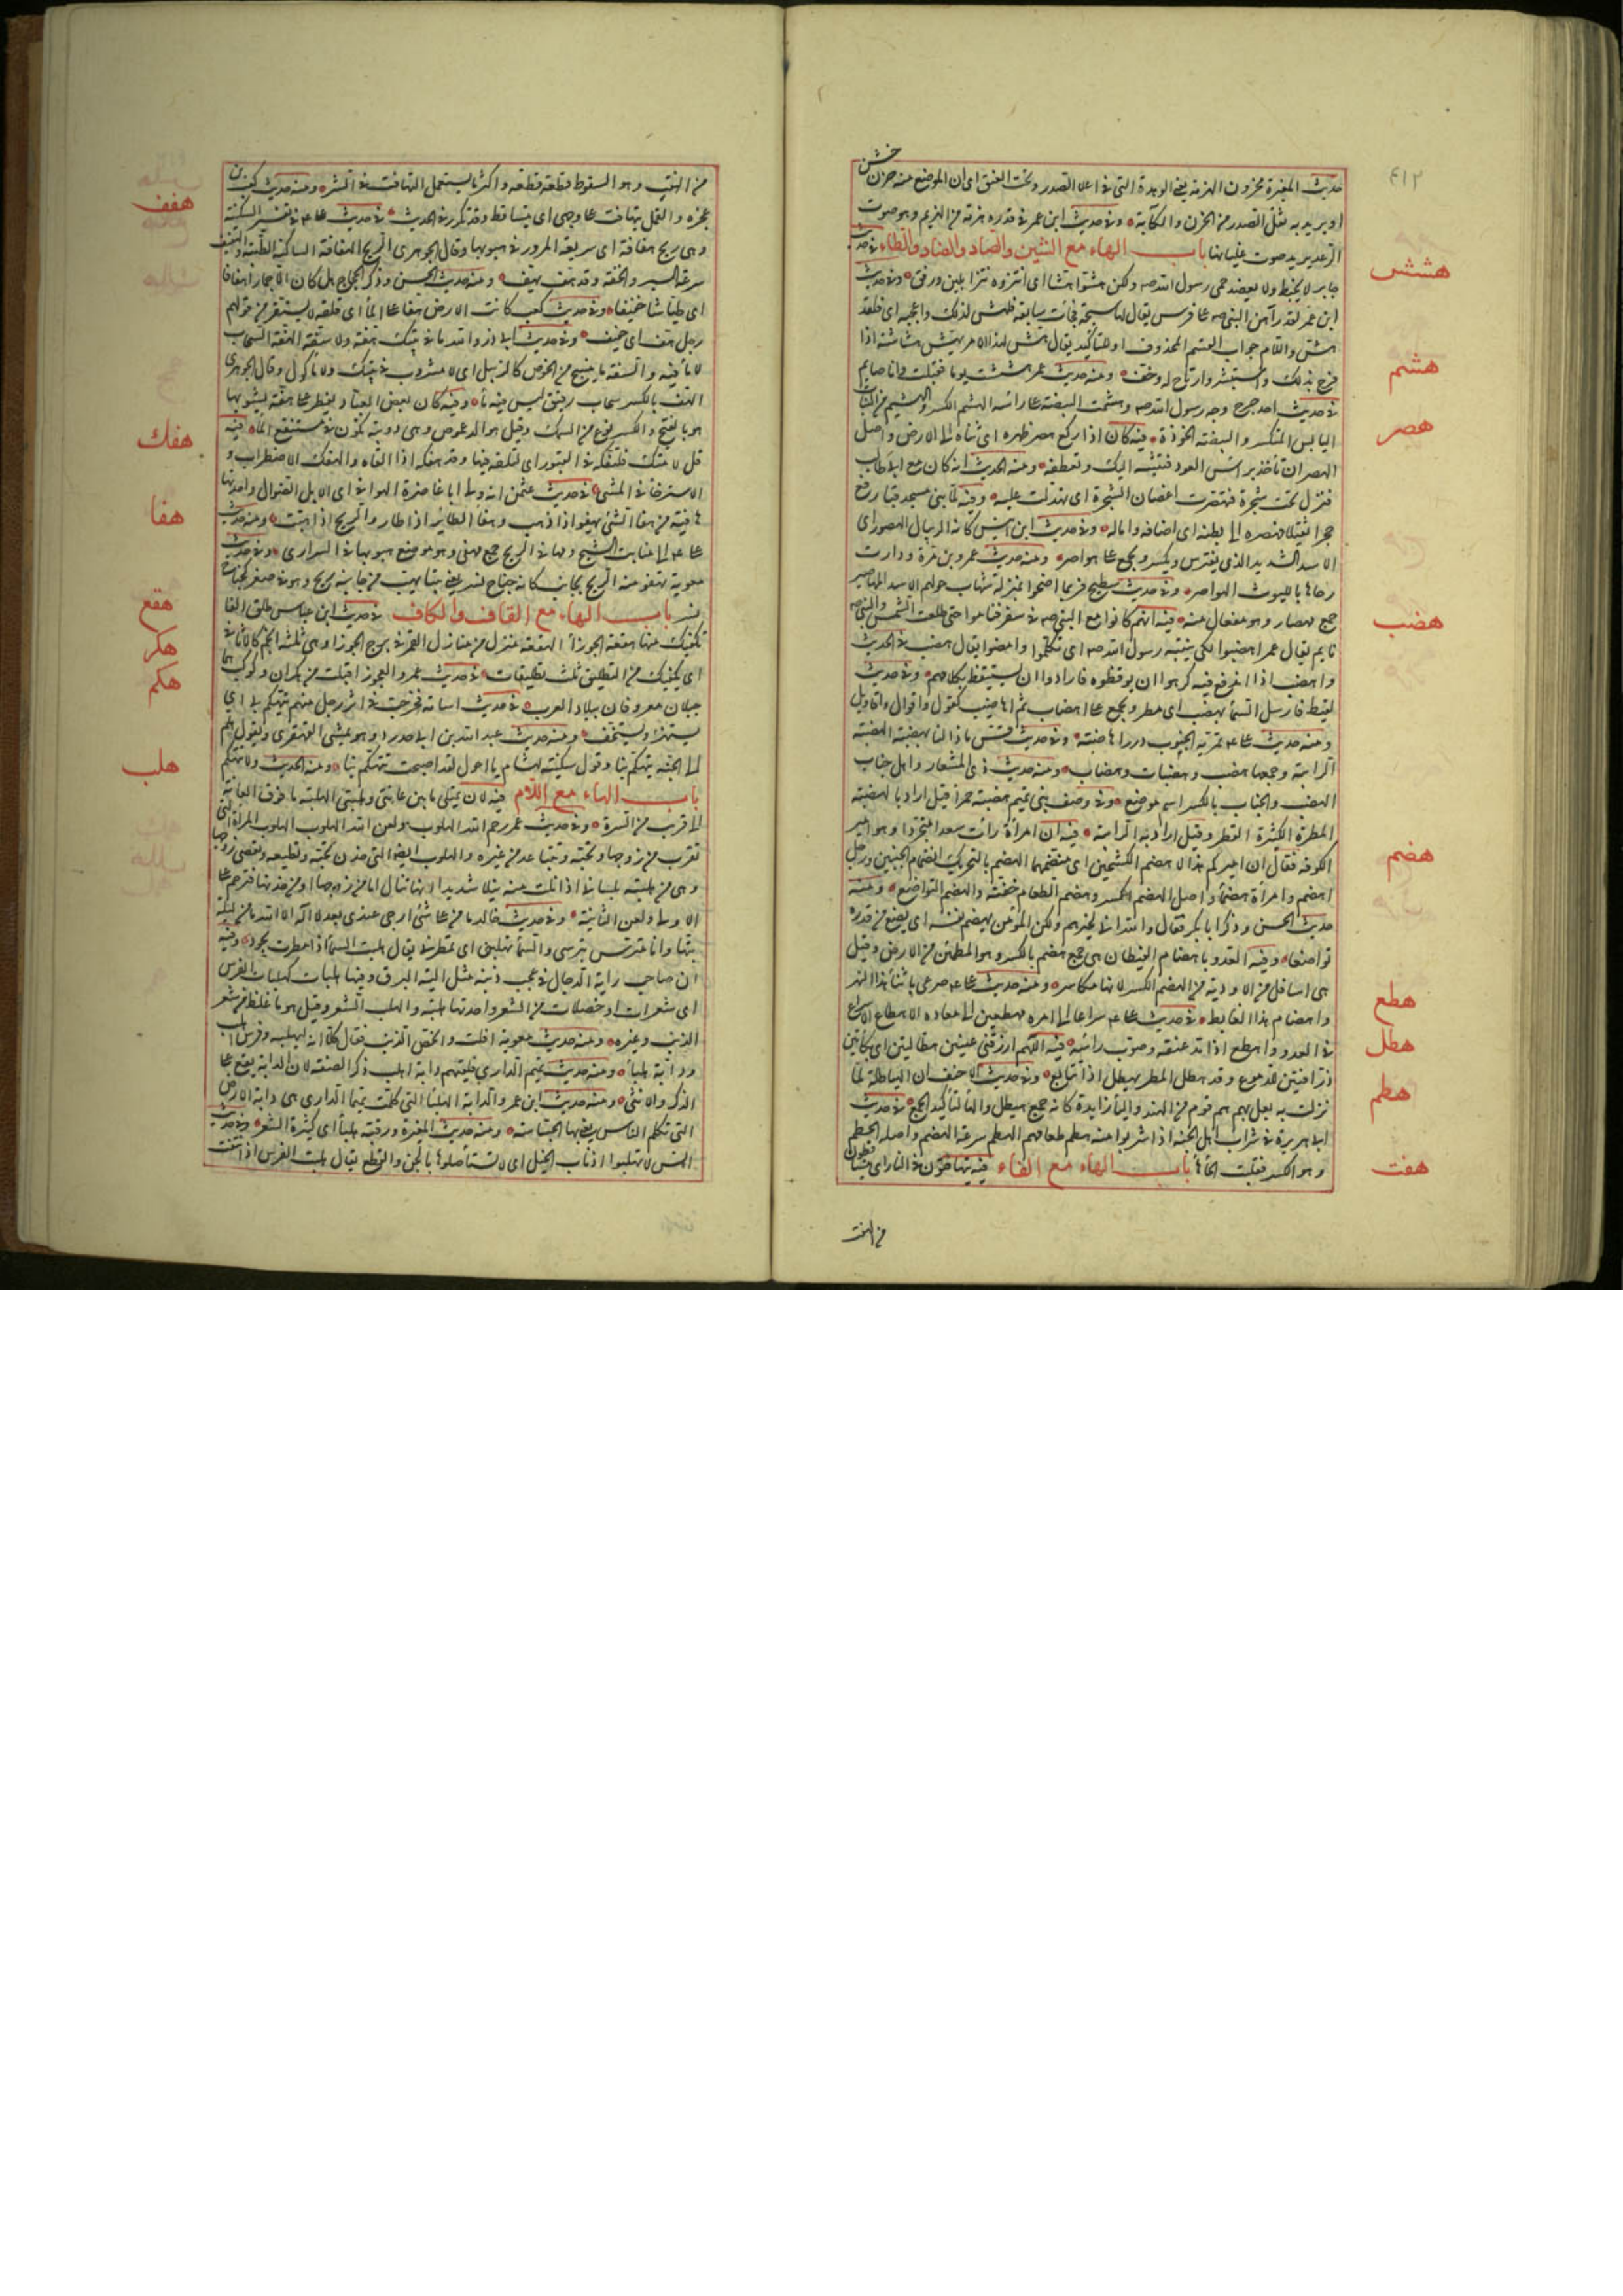 ٤١٢
خشن
حديث المغيرة محزون الهزمة يعني الوهدة التي في اعلا الصدر وتحت العنق اى ان الموضع منه حزن
او يريد به ثقل الصدر من الحزن والكآبة وفي حديث ابن عمر في قدر هزمة من الهزيم وهو صوت
الرعد يريد صوت غليانها باب الهاء مع الشين والصاد والضاد والطاء في حديث
هشش
جابر لا يخبط ولا يعضد حمى رسول الله صه ولكن هشوا هشا اى انثروه نثرا بلين ورفق وفي حديث
ابن عمر لقد راهن النبي صه على فرس يقال لها سبحة فجأت سابقة فلهش لذلك واعجبه اى فلقد
هش واللام جواب القسم المحذوف او للتأكيد يقال هش لهذا الامر يهش هشاشة اذا
فرح بذلك واستبشر وارتاح له وخف ومنه حديث عمر هششت يوما فقبلت وانا صايم
هشم
في حديث احد جرح وجه رسول الله صه وهشمت البيضة على رأسه الهشم الكسر والهشيم من النبات
اليابس المتكسر والبيضة الخوذة فيه كان اذا ركع هصر ظهره اى ثناه الى الارض واصل
هصر
الهصر ان تأخذ برأس العود فتثنيه اليك وتعطفه ومنه الحديث انه كان مع ابي طالب
فنزل تحت شجرة فتهصرت اغصان الشجرة اى تهدلت عليه وفيه لما بنى مسجد قبا رفع
حجرا ثقيلا فهصره الى بطنه اى اضافه واماله وفي حديث ابن انيس كانه الريبال الهصور اى
الاسد الشديد الذى يفترس ويكسر ويجمع على هواصر ومنه حديث عمرو بن مرة ودارت
رحاها بالليوث الهواصر وفي حديث سطيح فربما اضحوا بمنزلة تهاب حولهم الاسد المهاصير
جمع مهصار وهو مفعال منه فيه انهم كانوا مع النبي صه في سفر فناموا حتى طلعت الشمس والنبي صه
هضب
نايم فقال عمر اهضبوا لكي ينتبه رسول الله صه اى تكلموا وامضوا يقال هضب في الحديث
واهضب اذا اندفع فيه كرهوا ان يوقظوه فارادوا ان يستيقظ بكلامهم وفي حديث
لقيط فارسل السمأ بهضب اى مطر ويجمع على اهضاب ثم اهاضيب كقول واقوال واقاويل
ومنه حديث على عم تمريه الجنوب درر اهاضبه وفي حديث قس ماذا لنا بهضبة الهضبة
الرابية وجمعها هضب وهضبات وهضاب ومنه حديث ذى المشعار واهل جناب
الهضب والجناب بالكسر اسم موضع وفي وصف بني تميم هضبة حمرأ قيل اراد بالهضبة
المطرة الكثيرة القطر وقيل اراد به الرابية فيه ان امرأة رأت سعدا متجردا وهو امير
هضم
الكوفة فقالت ان اميركم هذا لاهضم الكشحين اى منضمهما الهضم بالتحريك انضمام الجنبين ورجل
اهضم وامرأة هضمأ واصل الهضم الكسر وهضم الطعام خفته والهضم التواضع ومنه
حديث الحسن وذكر ابا بكر فقال والله انه لخيرهم ولكن المؤمن يهضم نفسه اى يضع من قدره
تواضعا وفيه العدو باهضام الغيطان هي جمع هضم بالكسر وهو المطمئن من الارض وقيل
هي اسافل من الاودية من الهضم الكسر لانها مكاسر ومنه حديث على عم صرعى باثنأ هذا النهر
هطع
واهضام هذا الغايط في حديث على عم سراعا الى امره مهطعين الى معاده الاهطاع الاسراع
هطل
في العدو واهطع اذا مد عنقه وصوب رأسه فيه اللهم ارزقني عينين هطالتين اى بكائتين
ذرافتين للدموع وقد هطل المطر يهطل اذا تتابع وفي حديث الاحنف ان الهياطلة لما
هطم
نزلت به بعل بهم هم قوم من الهند واليأ زايدة كانه جمع هيطل والهأ لتأكيد الجمع في حديث
ابي هريرة في شراب اهل الجنة اذا شربوا منه هطم طعامهم الهطم سرعة الهضم واصله الحطم
هفت
وهو الكسر فقلبت الحأ هأ باب الهاء مع الفاء فيه يتهافتون في النار اى يتساقطون
من الهفت
من الهفت وهو السقوط قطعة قطعة واكثر ما يستعمل التهافت في الشر ومنه حديث كعب بن
هفف
عجرة والقمل يتهافت على وجهى اى يتساقط وقد تكرر في الحديث في حديث على عم في تفسير السكينة
وهي ريح هفافة اى سريعة المرور في هبوبها وقال الجوهرى الريح الهفافة الساكنة الطيبة والهفيف
سرعة السير والخفة وقد هف يهف ومنه حديث الحسن وذكر الحجاج هل كان الا حمارا هفافا
اى طياشا خفيفا وفي حديث كعب كانت الارض هفا على المأ اى قلقة لا تستقر من قولهم
رجل هف اى خفيف وفي حديث ابي ذر والله ما في بيتك هفة ولا سفة الهفة السحاب
لا مأ فيه والسفة ما ينسج من الخوص كالزبيل اى لا مشروب في بيتك ولا مأكول وقال الجوهرى
الهف بالكسر سحاب رقيق ليس فيه مأ وفيه كان بعض العباد يفطر على هفة يشويها
هو بالفتح والكسر نوع من السمك وقيل هو الدعموص وهي دويبة تكون في مستنقع المأ فيه
هفك
قل لامتك فلتهفكه في القبور اى لتلقه فيها وقد هفكه اذا القاه والتهفك الاضطراب و
الاسترخأ في المشى في حديث عثمن انه ولى ابا غاضرة الهوافي اى الابل الضوال واحدتها
هفا
هافية من هفا الشئ يهفو اذا ذهب وهفا الطاير اذا طار والريح اذا هبت ومنه حديث
على عم الى منابت الشيح ومهافي الريح جمع مهفى وهو موضع هبوبها في البرارى وفي حديث
معوية تهفو منه الريح بجانب كانه جناح نسر يعني بيتا تهب من جانبه ريح وهو في صغره كجناح
هقع
نسر باب الهاء مع القاف والكاف في حديث ابن عباس طلق الفا
يكفيك منها هقعة الجوزأ الهقعة منزل من منازل القمر في برج الجوزا وهي ثلثة انجم كالاثافي
هكر
اى يكفيك من التطليق ثلث تطليقات في حديث عمر والعجوز اقبلت من هكران وكوكب هما
هكم
جبلان معروفان ببلاد العرب في حديث اسامة فخرجت في اثر رجل منهم يتهكم بي اى
يستهزئ ويستخف ومنه حديث عبد الله بن ابي حدرد وهو يمشى القهقرى ويقول هلم
الى الجنة يتهكم بنا وقول سكينة لهشام يا احول لقد اصبحت تتهكم بنا ومنه الحديث ولا متهكم
هلب
باب الهاء مع اللام فيه لان يمتلى ما بين عانتي وهلبتي الهلبة ما فوق العانة
الى قريب من السرة وفي حديث عمر رحم الله الهلوب ولعن الله الهلوب الهلوب المرأة التي
تقرب من زوجها وتحبه وتتباعد من غيره والهلوب ايضا التي لها خدن تحبه وتطيعه وتعصى زوجها
وهي من هلبته بلساني اذا نلت منه نيلا شديدا لانها تنال اما من زوجها او من خدنها فترحم على
الاولى ولعن الثانية وفي حديث خالد ما من عملي شئ ارجى عندى بعد لا اله الا الله من ليلة
بتها وانا متترس بترسى والسمأ تهلبني اى تمطرني يقال هلبت السمأ اذا مطرت بجود وفيه
ان صاحب راية الدجال في عجب ذنبه مثل الية البرق وفيها هلبات كهلبات الفرس
اى شعرات او خصلات من الشعر واحدتها هلبة والهلب الشعر وقيل هو ما غلظ من شعر
الذنب وغيره ومنه حديث معوية افلت وانحص الذنب فقال كلا انه لبهلبه وفرس اهلب
ودابة هلبأ ومنه حديث تميم الدارى فلقيهم دابة اهلب ذكر الصفة لان الدابة يقع على
الذكر والانثى ومنه حديث ابن عمر والدابة الهلبأ التي كلمت تميما الدارى هي دابة الارض
التي تكلم الناس يعني بها الجساسة ومنه حديث المغيرة ورقبة هلبأ اى كثيرة الشعر وفي حديث
انس لا تهلبوا اذناب الخيل اى لا تستأصلوها بالجز والقطع يقال هلبت الفرس اذا نتفت